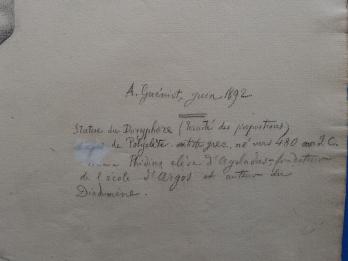 A. Guéniot, juin 1892
Statue du Doryphore (Traité des proportions)
de Polyclète artiste grec, né vers 480 av. J.C.
Phidias élève d'Ageladas, fondateur
de l'école d'Argos et auteur du
Diadumène.